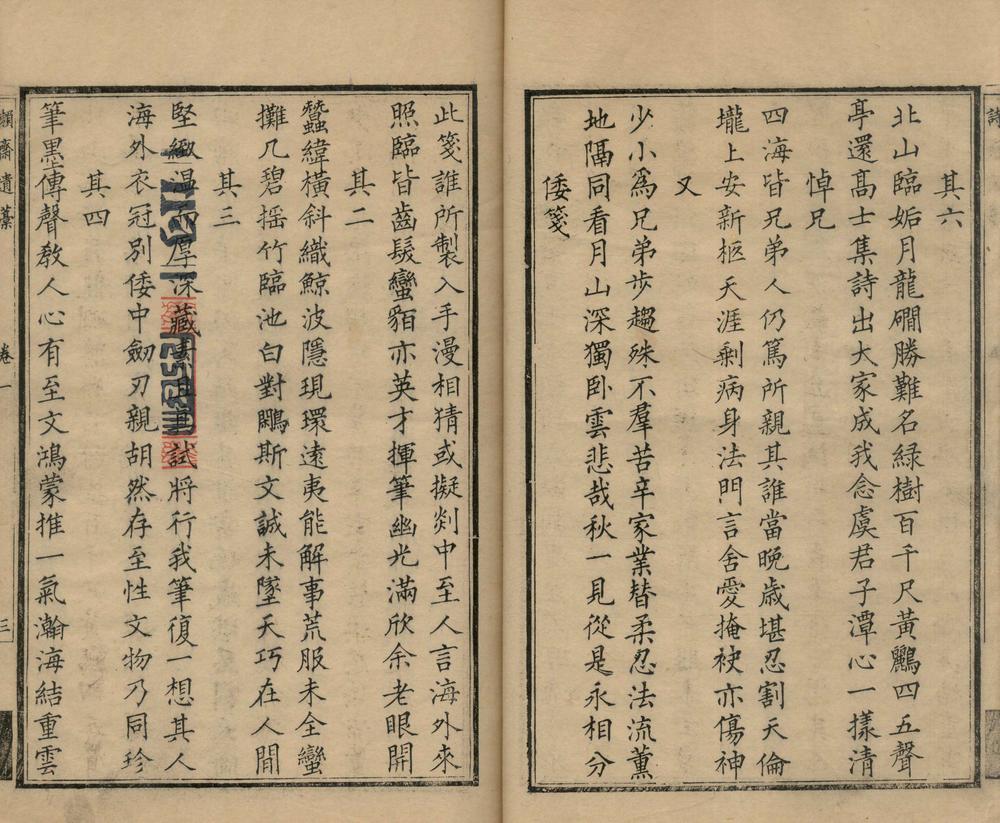 其六
北山臨姤月龍磵勝難名綠樹百千尺黃鸝四五聲
亭還髙士集詩出大家成我念虞君子潭心一樣清
悼兄
四海皆兄弟人仍篤所親其誰當晚歲堪忍割天倫
壠上安新柩天涯剩病身法門言舍愛掩袂亦傷神
又
少小為兄弟步趨殊不羣苦辛家業替柔忍法流薰
地隔同看月山深獨卧雲悲哉秋一見從是永相分
倭箋
此箋誰所製入手漫相猜或擬剡中至人言海外來
照臨皆齒髮蠻貊亦英才揮筆幽光滿欣余老眼開
其二
蠶緯橫斜織鯨波隱現環遠夷能解事荒服未全蠻
攤几碧摇竹臨池白對鷴斯文誠未墜天巧在人間
其三
堅緻温而厚深藏試將行我筆復一想其人
海外衣冠別倭中劒刃親胡然存至性文物乃同珍
其四
筆墨傳聲教人心有至文鴻蒙推一氣瀚海結重雲
懶齋遺藁
卷一
三
詩